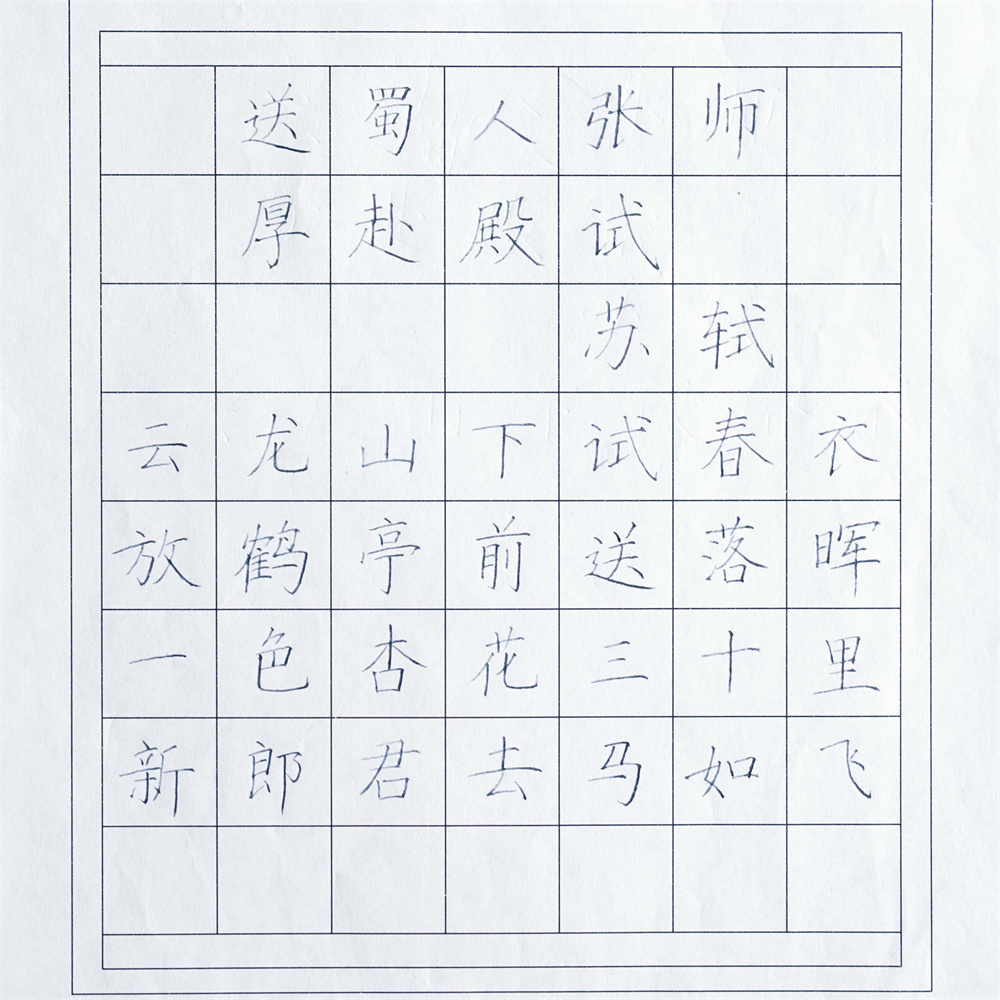 送蜀人张师
厚赴殿试
苏轼
云龙山下试春衣
放鹤亭前送落晖
一色杏花三十里
新郎君去马如飞